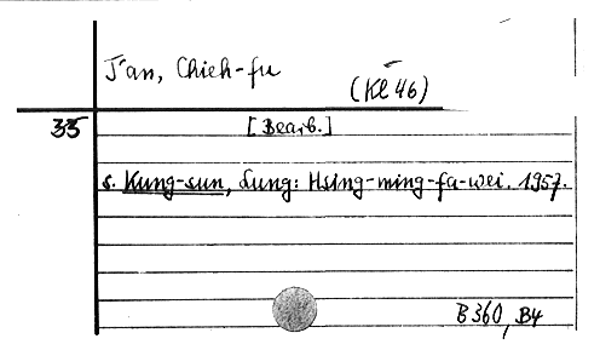 T'an, Chieh-fu
(Kl 46)
35
[Bearb.]
s. Kung-sun, Lung: Hsing-ming-fa-wei. 1957.
B 360, B4